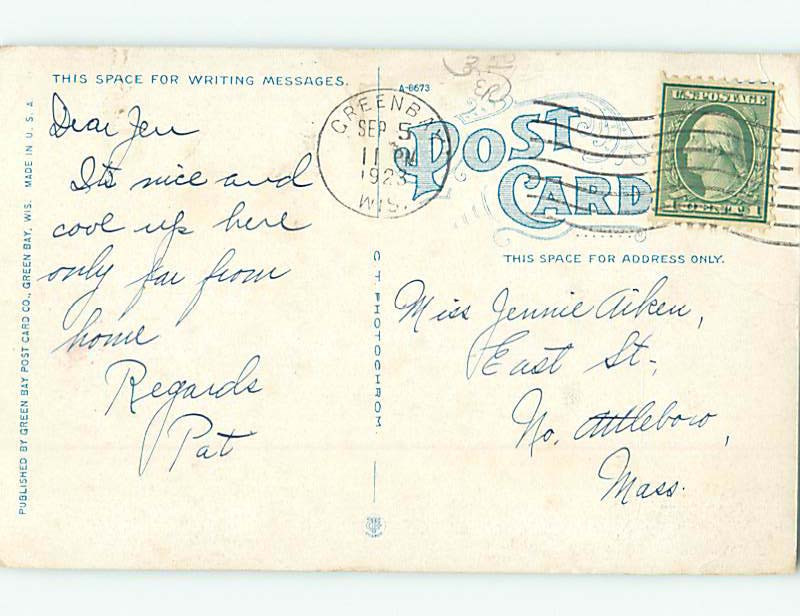 THIS SPACE FOR WRITING MESSAGES.
Dear Jen
It's nice and
cool up here
only far from
home
Regards
Pat
PUBLISHED BY GREEN BAY POST CARD CO., GREEN BAY, WIS. MADE IN U.S.A.
C T PHOTOCHROM
A-8673
GREEN BAY
SEP 5
11 PM
1923
WIS.
POST
CARD
U.S. POSTAGE
1 CENT 1
THIS SPACE FOR ADDRESS ONLY.
Miss Jennie Aiken,
East St.,
No. Attleboro,
Mass.